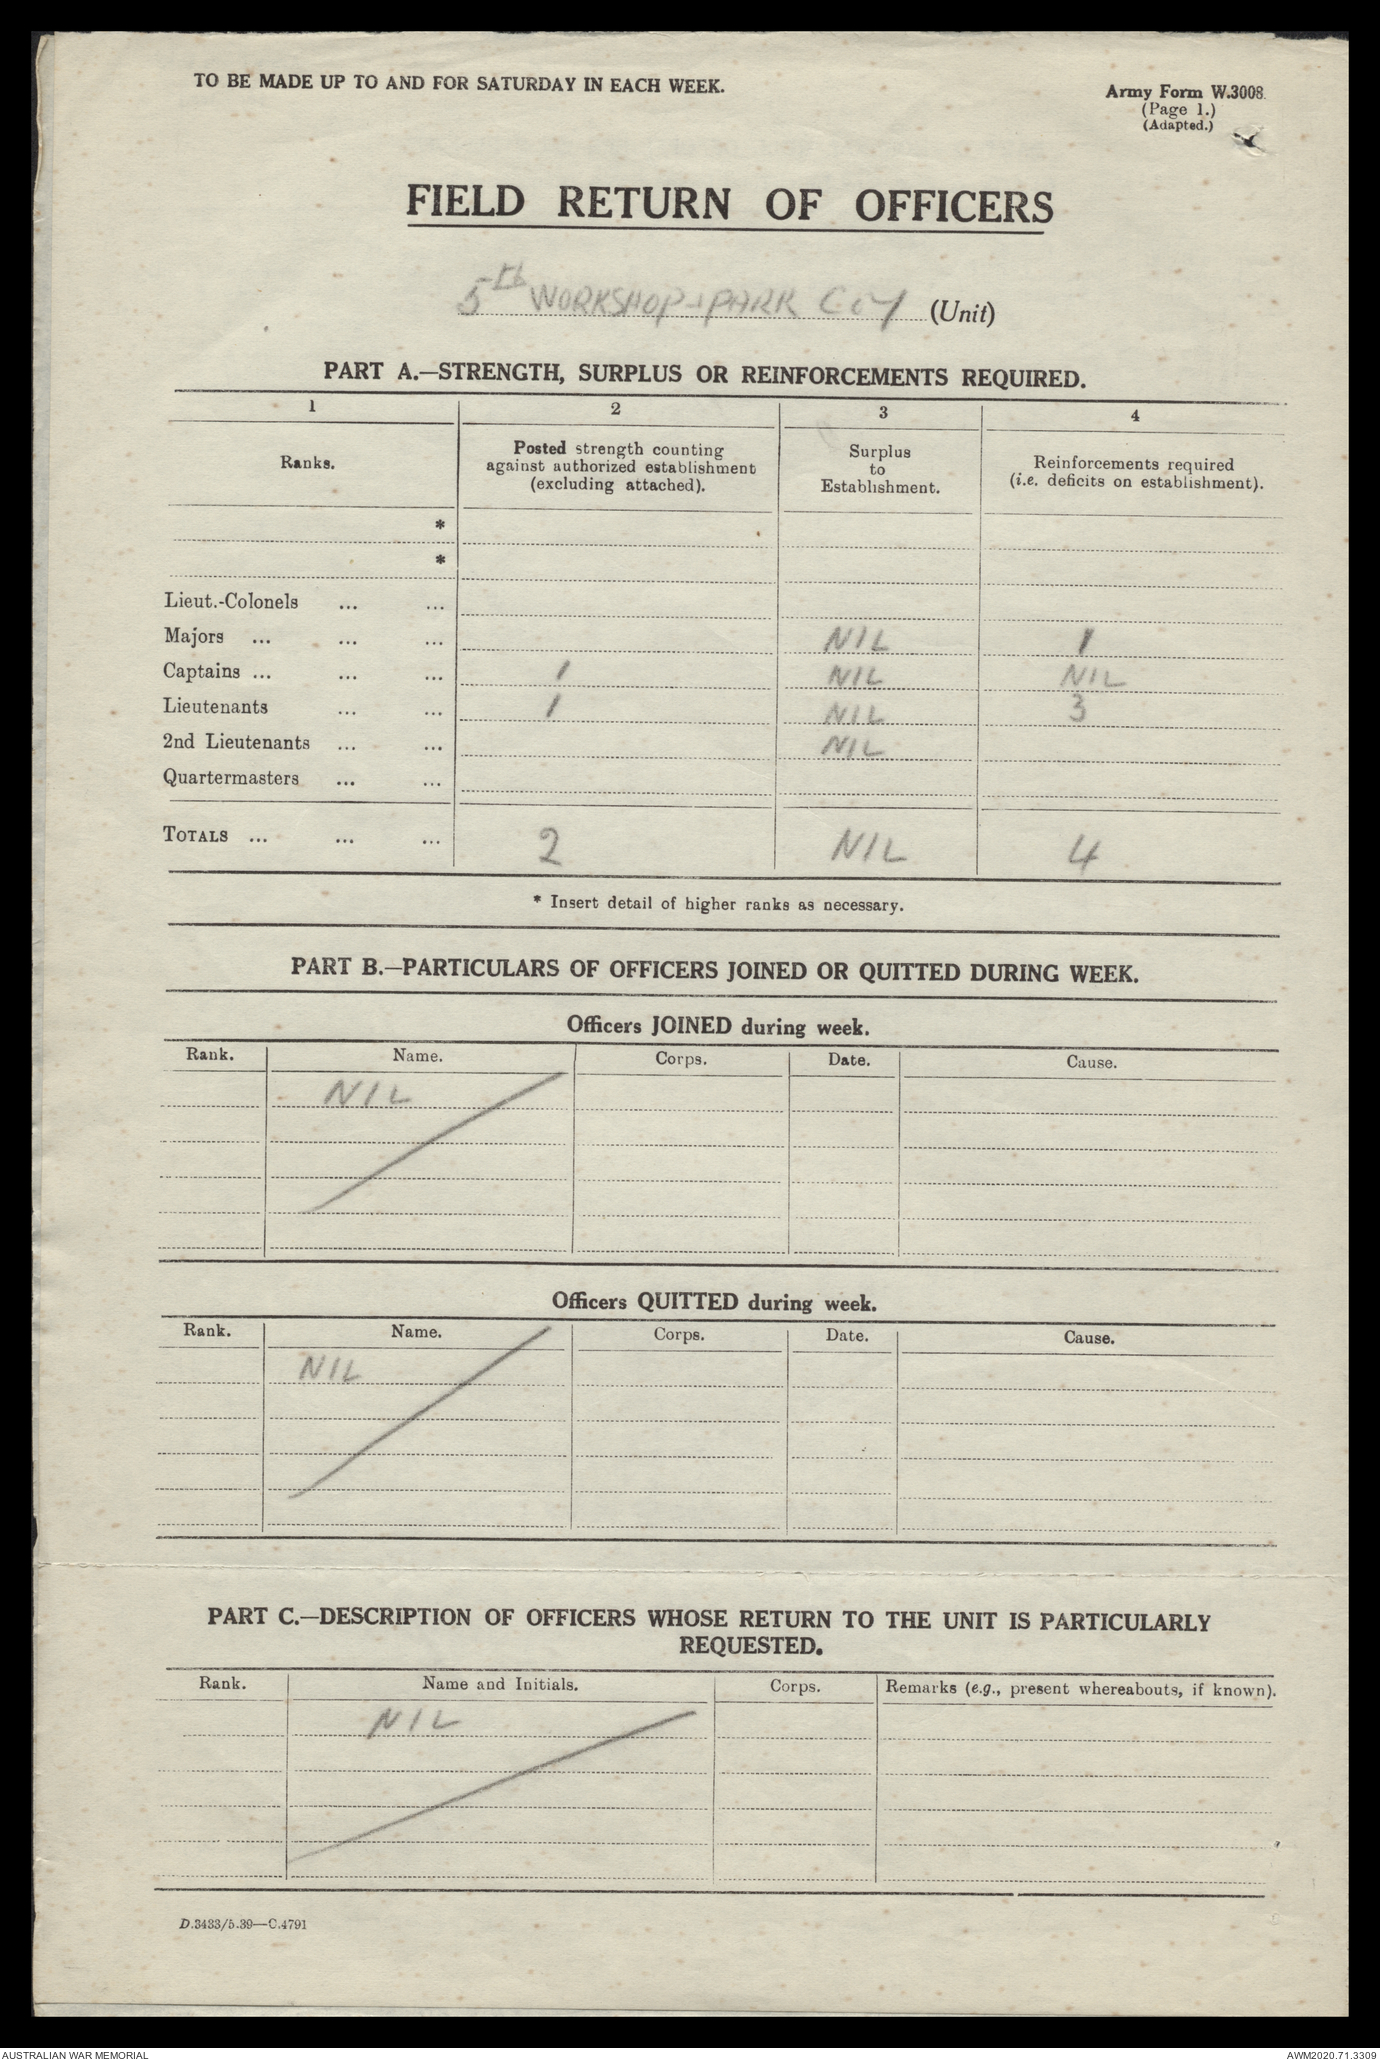 TO BE MADE UP TO AND FOR SATURDAY IN EACH WEEK.
Army Form W.3008.
(Page 1.)
(Adapted.)
FIELD RETURN OF OFFICERS
5th WORKSHOP & PARK COY (Unit)
PART A.—STRENGTH, SURPLUS OR REINFORCEMENTS REQUIRED.
1 2 3 4
Ranks. Posted strength counting against authorized establishment (excluding attached). Surplus to Establishment. Reinforcements required (i.e. deficits on establishment).
*
*
Lieut.-Colonels ... ...
Majors ... ... ... NIL 1
Captains ... ... ... 1 NIL NIL
Lieutenants ... ... 1 NIL 3
2nd Lieutenants ... ... NIL
Quartermasters ... ...
TOTALS ... ... ... 2 NIL 4
* Insert detail of higher ranks as necessary.
PART B.—PARTICULARS OF OFFICERS JOINED OR QUITTED DURING WEEK.
Officers JOINED during week.
Rank. Name. Corps. Date. Cause.
NIL
Officers QUITTED during week.
Rank. Name. Corps. Date. Cause.
NIL
PART C.—DESCRIPTION OF OFFICERS WHOSE RETURN TO THE UNIT IS PARTICULARLY
REQUESTED.
Rank. Name and Initials. Corps. Remarks (e.g., present whereabouts, if known).
NIL
D.3433/5.39—C.4791
AUSTRALIAN WAR MEMORIAL
AWM2020.71.3309